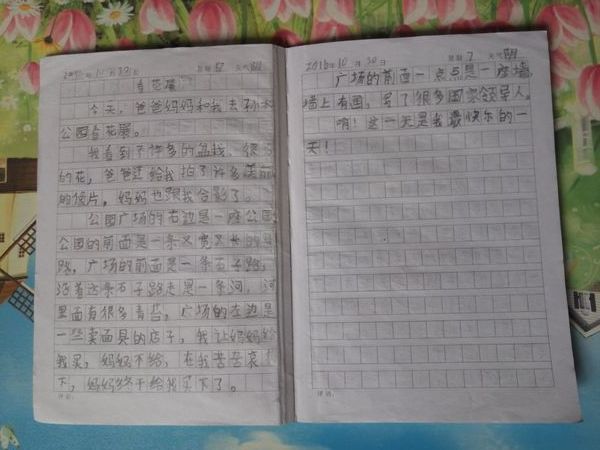 看花展
今天，爸爸妈妈和我去孙水
公园看花展。
我看到了许多的盆栽，很
的花，爸爸还给我拍了许多美丽
的像片。妈妈也跟我合影了。
公园广场的右边是一座公园
公园的前面是一条又宽又长的马
路，广场的前面是一条石子路，
沿着这条石子路走是一条河，河
里面有很多青苔。广场的左边是
一些卖面具的店子，我让妈妈给
我买，妈妈不给，在我苦苦哀
下，妈妈终于给我买下了。
评语：
2016年10月30日 星期7 天气阴
广场的前面一点点是一座墙，
墙上有画，写了很多国家领导人。
啊！这一天是我最快乐的一
天！
评语：